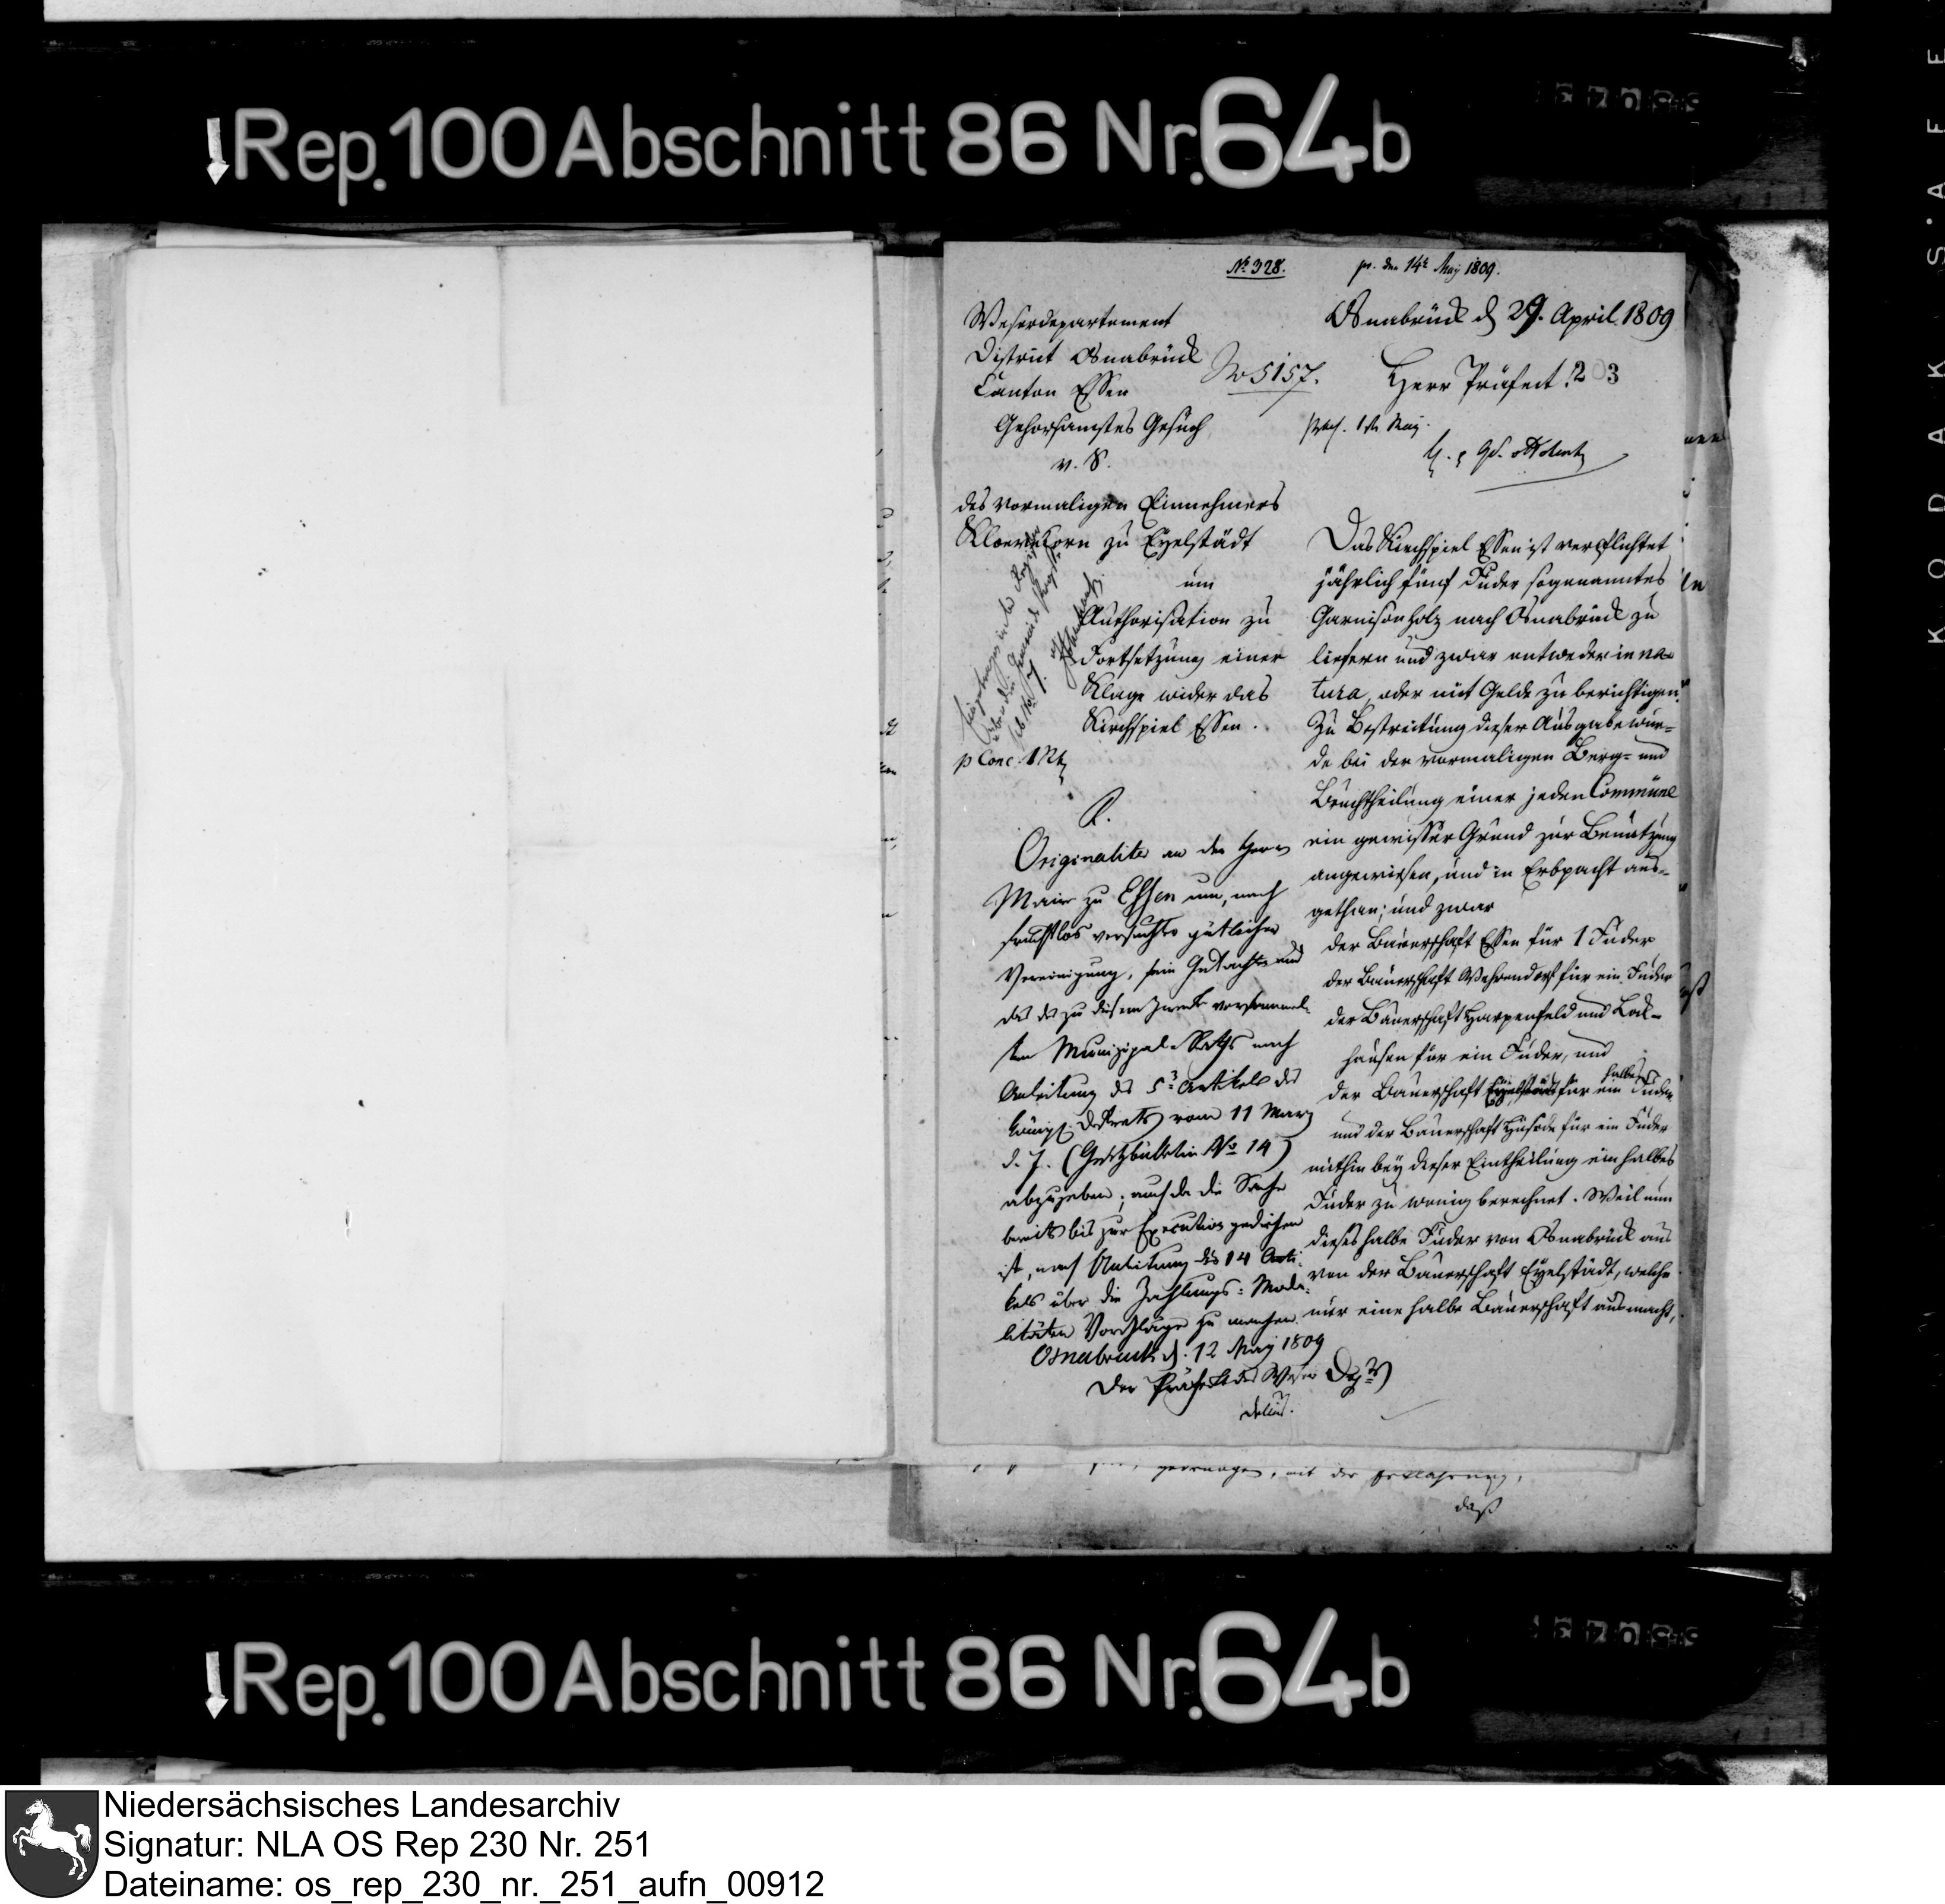 Rep. 100 Abschnitt 86 Nr. 64b
No 328.
pr. den 14t May 1809.
Weserdepartement
District Osnabrück
Canton Essen
Gehorsamstes Gesuch
v. S.
des vormaligen Einnehmers
Kloevekorn zu Eyelstädt
um
Authorisation zu
Fortsetzung einer
Klage wider das
Kirchspiel Essen.
No 5157.
p Conc.
R.
Originaliter an den Herrn
Maire zu Essen um, nach
fruchtlos versuchter gütlicher
Vereinigung, sein Gutachten und
das des zu diesem Zweck versammel-
ten Munizipal-Raths nach
Anleitung des 5. Artikels des
königl. Dekrets vom 11 Marz
d. J. (Gesetzbulletin No 14)
abzugeben; auch da die Sache
bereits bis zur Execution gediehen
ist, nach Anleitung des 14 Arti-
kels über die Zahlungs-Moda-
litäten Vorschläge zu machen.
Osnabrück d. 12 May 1809
Der Präfekt des Weser Depts
Delius.
Osnabrück d 29. April 1809
Herr Präfect!
203
praes. 1 May.
Das Kirchspiel Essen ist verpflichtet
jährlich fünf Fuder sogenanntes
Garnisonholz nach Osnabrück zu
liefern und zwar entweder in na-
tura, oder mit Gelde zu berichtigen.
Zu Bestreitung dieser Ausgabe wur-
de bei der vormaligen Berg- und
Bruchtheilung einer jeden Commüne
ein gewisser Grund zur Benutzung
angewiesen, und in Erbpacht aus-
gethan; und zwar
der Bauerschaft Essen für 1 Fuder
der Bauerschaft Wehrendorf für ein Fuder
der Bauerschaft Harpenfeld und Lock-
hausen für ein Fuder, und
der Bauerschaft Eyelstädt für ein halbes Fuder
und der Bauerschaft Hüsede für ein Fuder
mithin bey dieser Eintheilung ein halbes
Fuder zu wenig berechnet. Weil nun
dieses halbe Fuder von Osnabrück aus
von der Bauerschaft Eyelstädt, welche
nur eine halbe Bauerschaft ausmacht,
daß
Rep. 100 Abschnitt 86 Nr. 64b
KODAK S'AFE
Niedersächsisches Landesarchiv
Signatur: NLA OS Rep 230 Nr. 251
Dateiname: os_rep_230_nr._251_aufn_00912